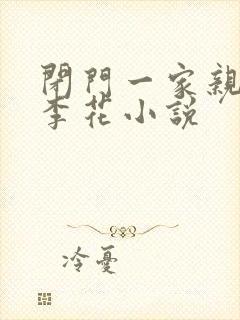 閉門一家親
李花小說
冷憂